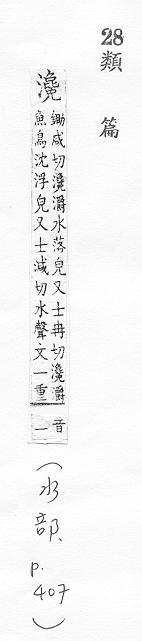 28 類篇
瀺
鋤咸切瀺灂水落皃又士冉切瀺灂
魚鳥沈浮皃又士減切水聲文一重
音
一
(水部. p. 407)